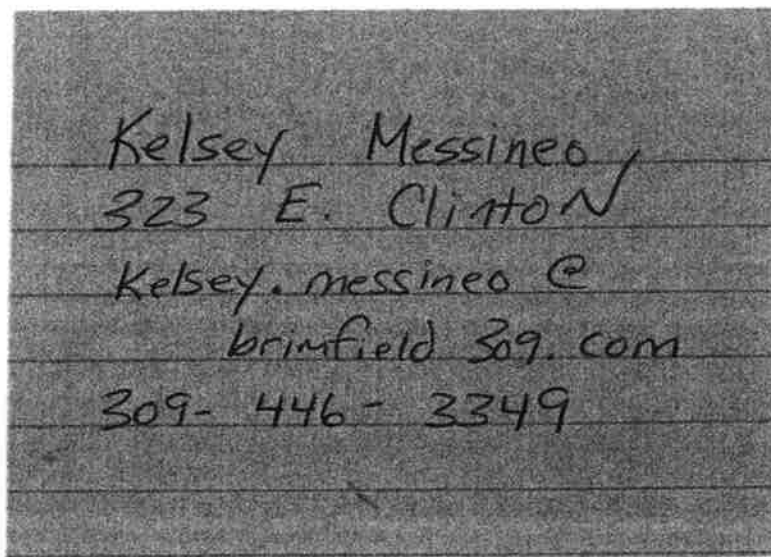 Kelsey Messineo
323 E. Clinton
Kelsey.messineo @
brimfield 309.com
309-446-3349